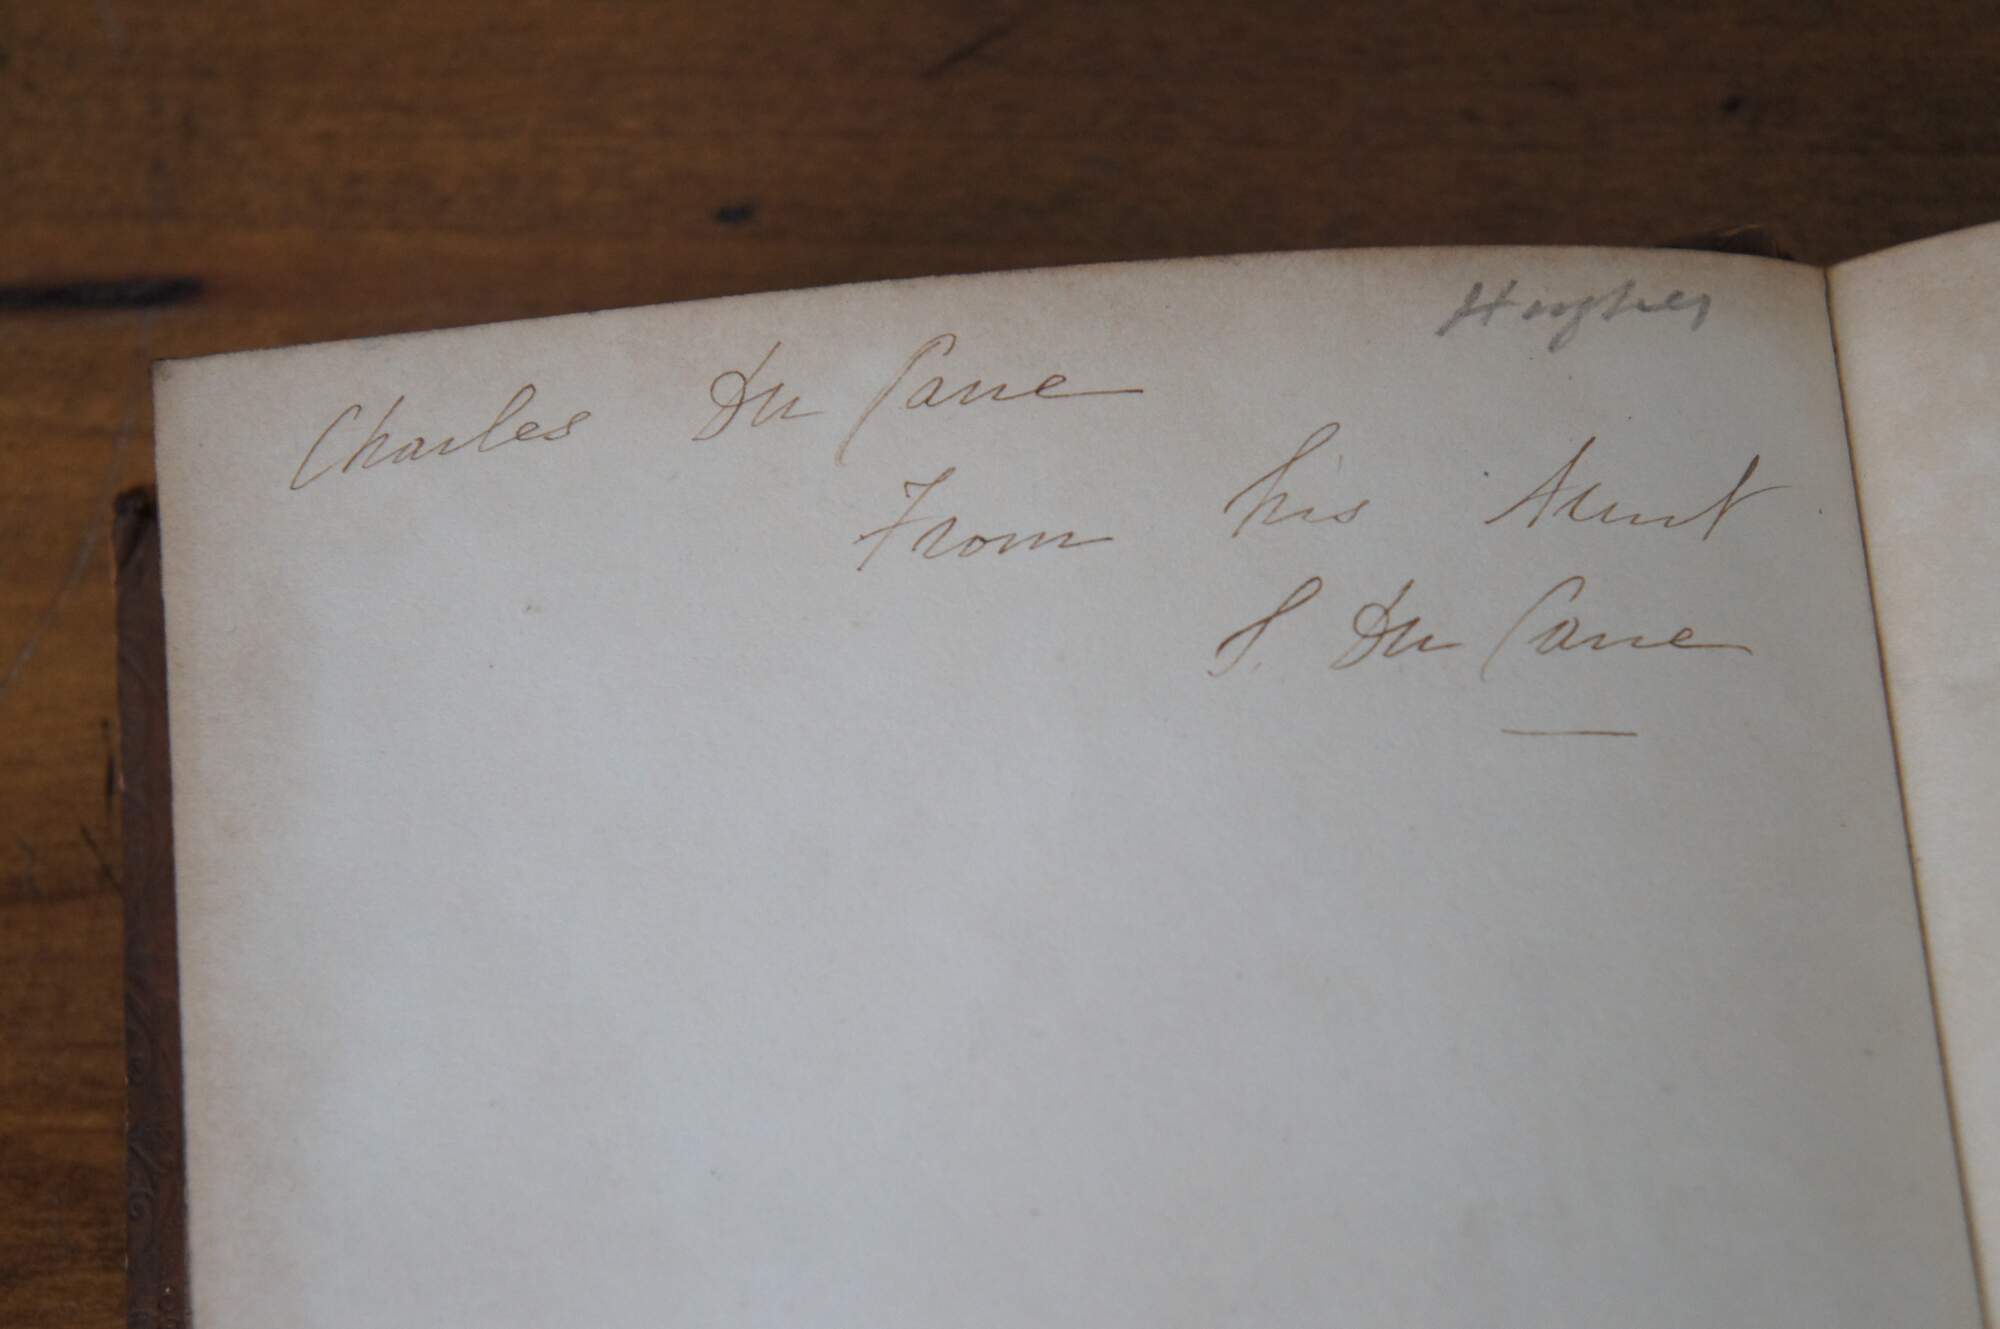 Hughes
Charles Du Cane
From his Aunt
S. Du Cane